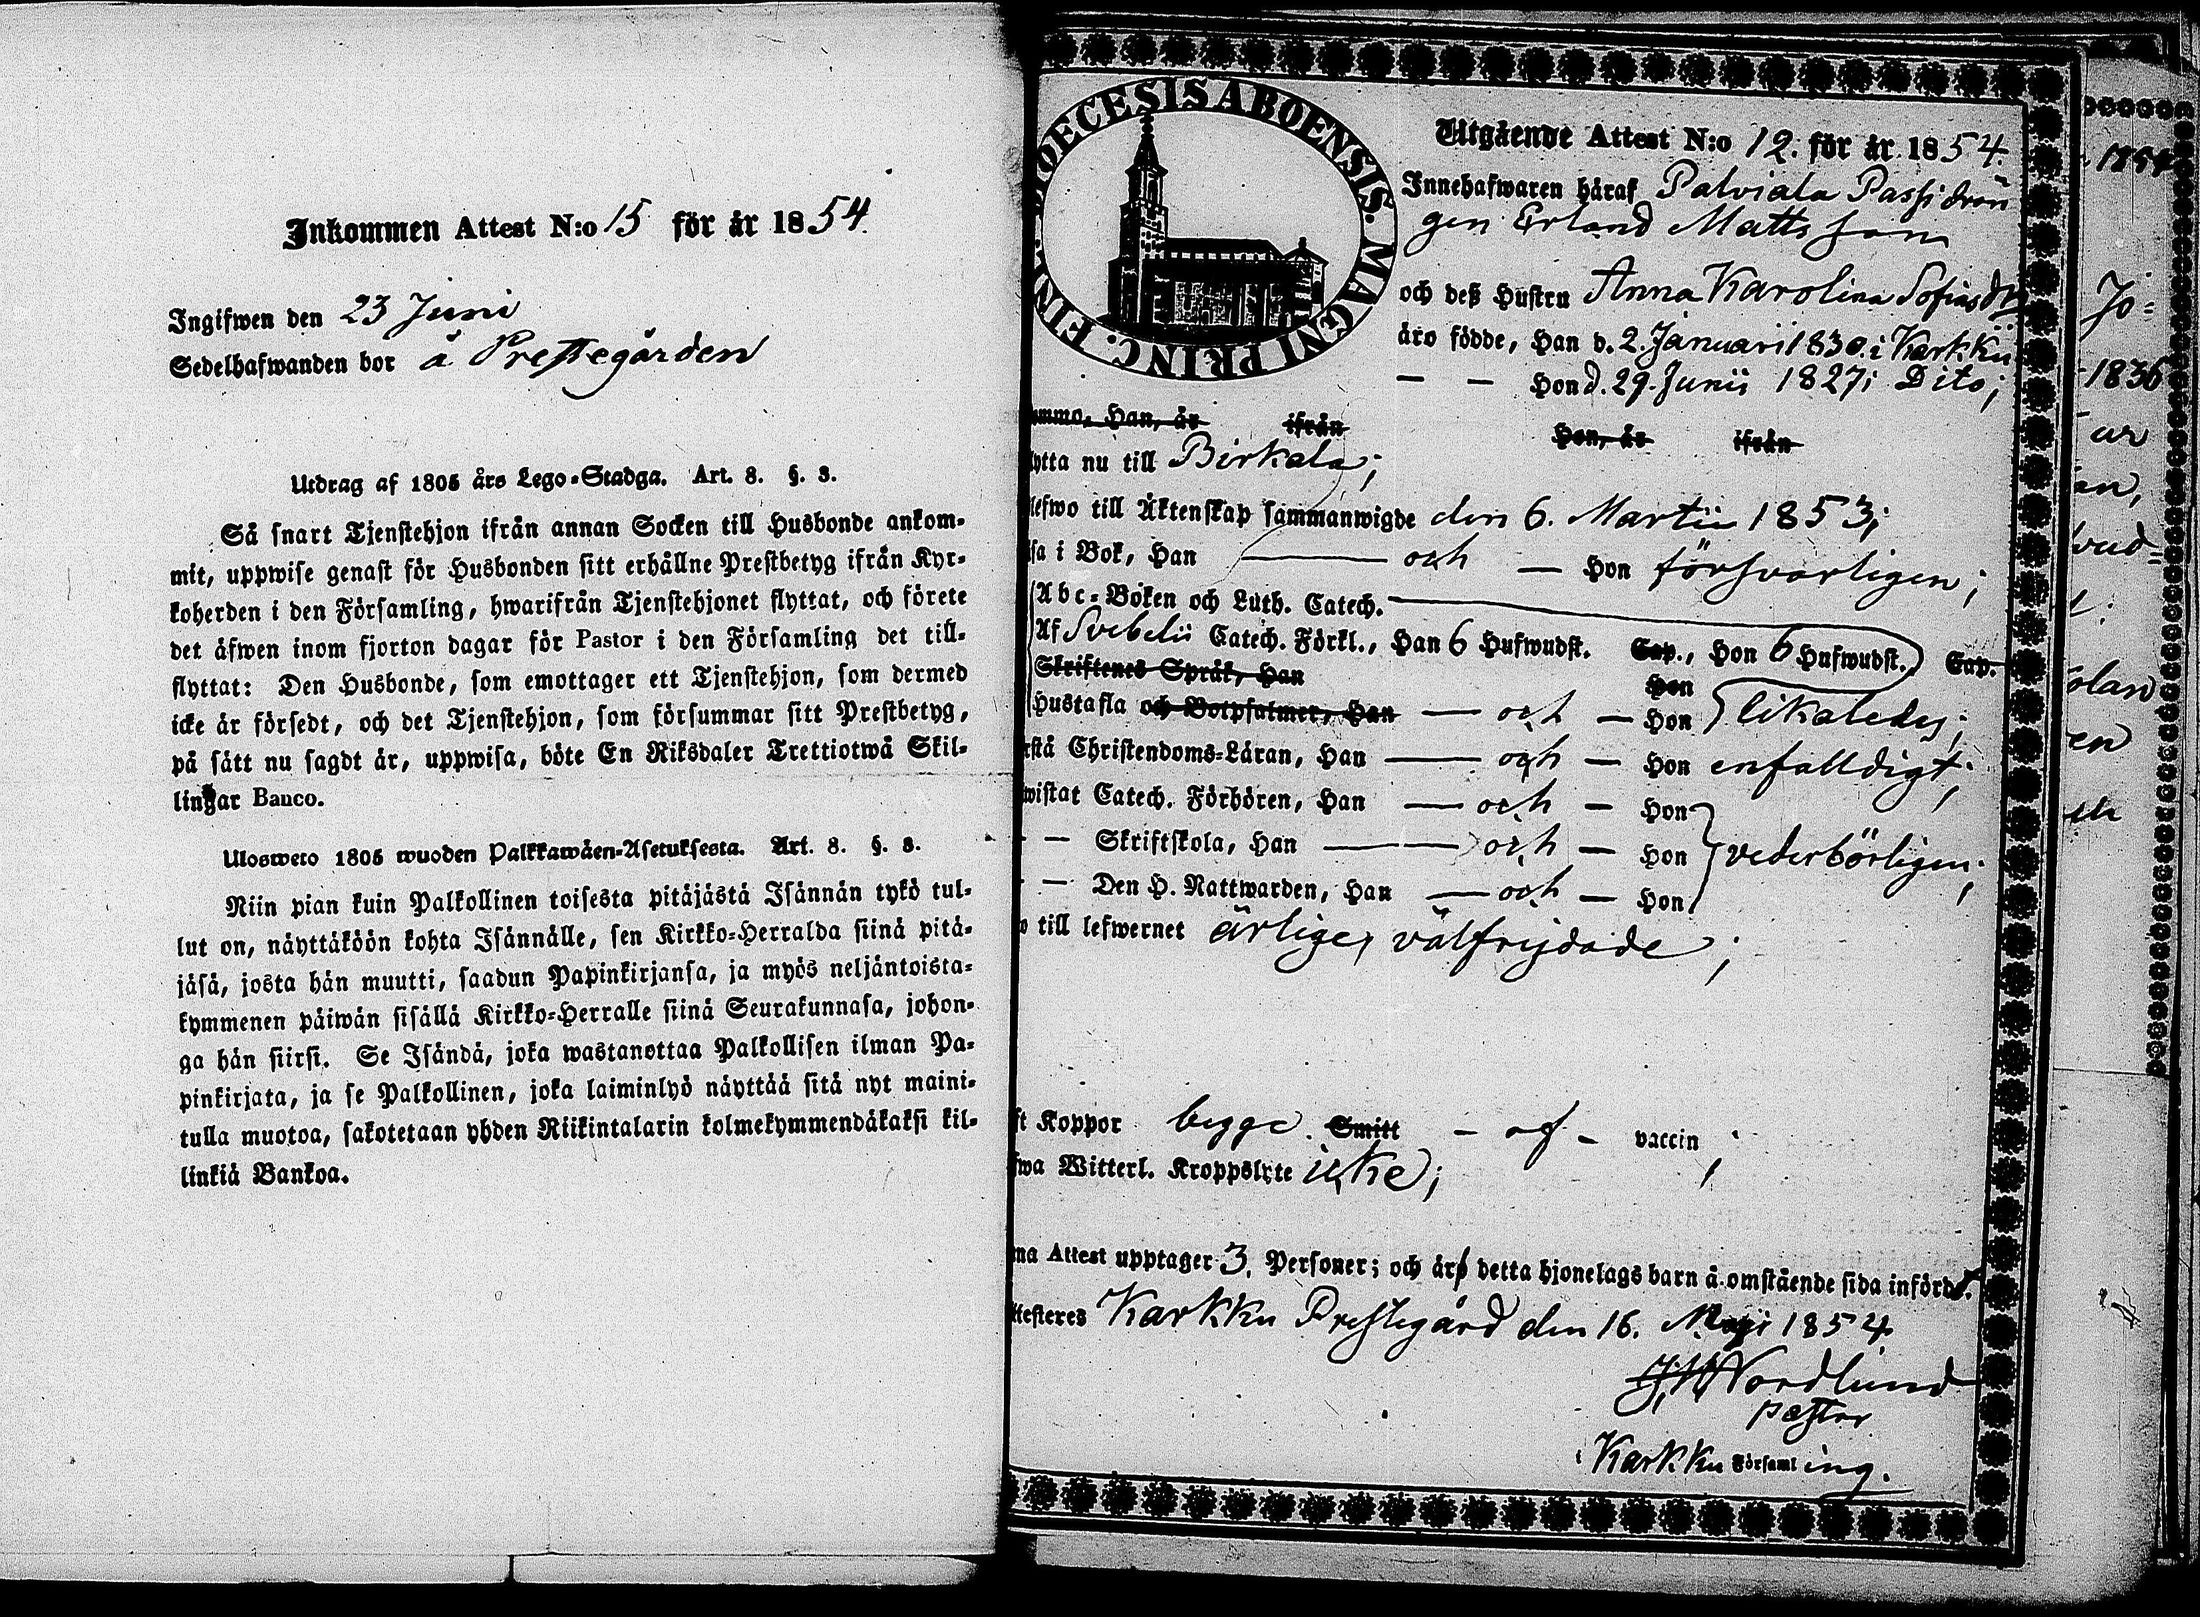 Inkommen Attest N:o 15 för år 1854.
Ingifwen den 23 Juni
Sedelhafwanden bor å Prestegården
Utdrag af 1805 års Lego-Stadga. Art. 8. §. 3.
Så snart Tjenstehjon ifrån annan Socken till Husbonde ankom-
mit, uppwise genast för Husbonden sitt erhållne Prestbetyg ifrån Kyr-
koherden i den Församling, hwarifrån Tjenstehjonet flyttat, och förete
det äfwen inom fjorton dagar för Pastor i den Församling det till-
flyttat: Den Husbonde, som emottager ett Tjenstehjon, som dermed
icke är försedt, och det Tjenstehjon, som försummar sitt Prestbetyg,
på sätt nu sagdt är, uppwisa, böte En Riksdaler Trettiotwå Skil-
lingar Banco.
Ulosweto 1805 wuoden Palkkawäen-Asetuksesta. Art. 8. §. 3.
Niin pian kuin Palkollinen toisesta pitäjästä Isännän tykö tul-
lut on, näyttäköön kohta Isännälle, sen Kirkko-Herralda siinä pitä-
jäsä, josta hän muutti, saadun Papinkirjansa, ja myös neljäntoista-
kymmenen päiwän sisällä Kirkko-Herralle siinä Seurakunnasa, johon-
ga hän siirsi. Se Isändä, joka wastanottaa Palkollisen ilman Pa-
pinkirjata, ja se Palkollinen, joka laiminlyö näyttää sitä nyt maini-
tulla muotoa, sakotetaan yhden Riikintalarin kolmekymmendäkaksi kil-
linkiä Bankoa.
DIOECESIS ABOENSIS. MAGNI PRINC. FINL.
Utgående Attest N:o 12. för år 1854.
Innehafwaren häraf Palviala Passi drän
gen Erland Matts son
och deß Hustru Anna Karolina Sofiasdr
äro födde, Han d. 2. Januarii 1830. i Karkku
— — Hon d. 29. Junii 1827 i Dito;
ommo, Han, år ifrån Hon, år ifrån
lytta nu till Birkala;
lefwo till Äktenskap sammanwigde den 6. Martii 1853;
sa i Bok, Han — och — Hon försvarligen;
Abc-Boken och Luth. Catech.
Af Svebelii Catech. Förkl., Han 6 Hufwudst. Cap., Hon 6 Hufwudst. Cap.
Skriftenes Språk, Han Hon
Hustafla och Botpsalmer, Han — och — Hon likaledes;
rstå Christendoms-Läran, Han — och — Hon enfalldigt;
wistat Catech. Förhören, Han — och — Hon
— Skriftskola, Han — och — Hon vederbörligen;
— Den H. Nattwarden, Han — och — Hon
o till lefwernet ärlige, välfrejdade;
ft Koppor begge. Smitt – af – vaccin;
fwa Witterl. Kroppslyte icke;
na Attest upptager 3. Personer; och äro detta hjonelags barn å omstående sida infördt.
ttesteres Karkku Prestegård den 16. Maji 1854
Nordlund
pastor
i Karkku Församling.
1854
Jo=
1836
ur